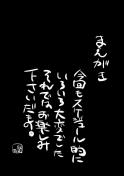 まんがき
今回もスケジュール的に
いろいろ大変でした
それではお楽しみ
下さいだます。